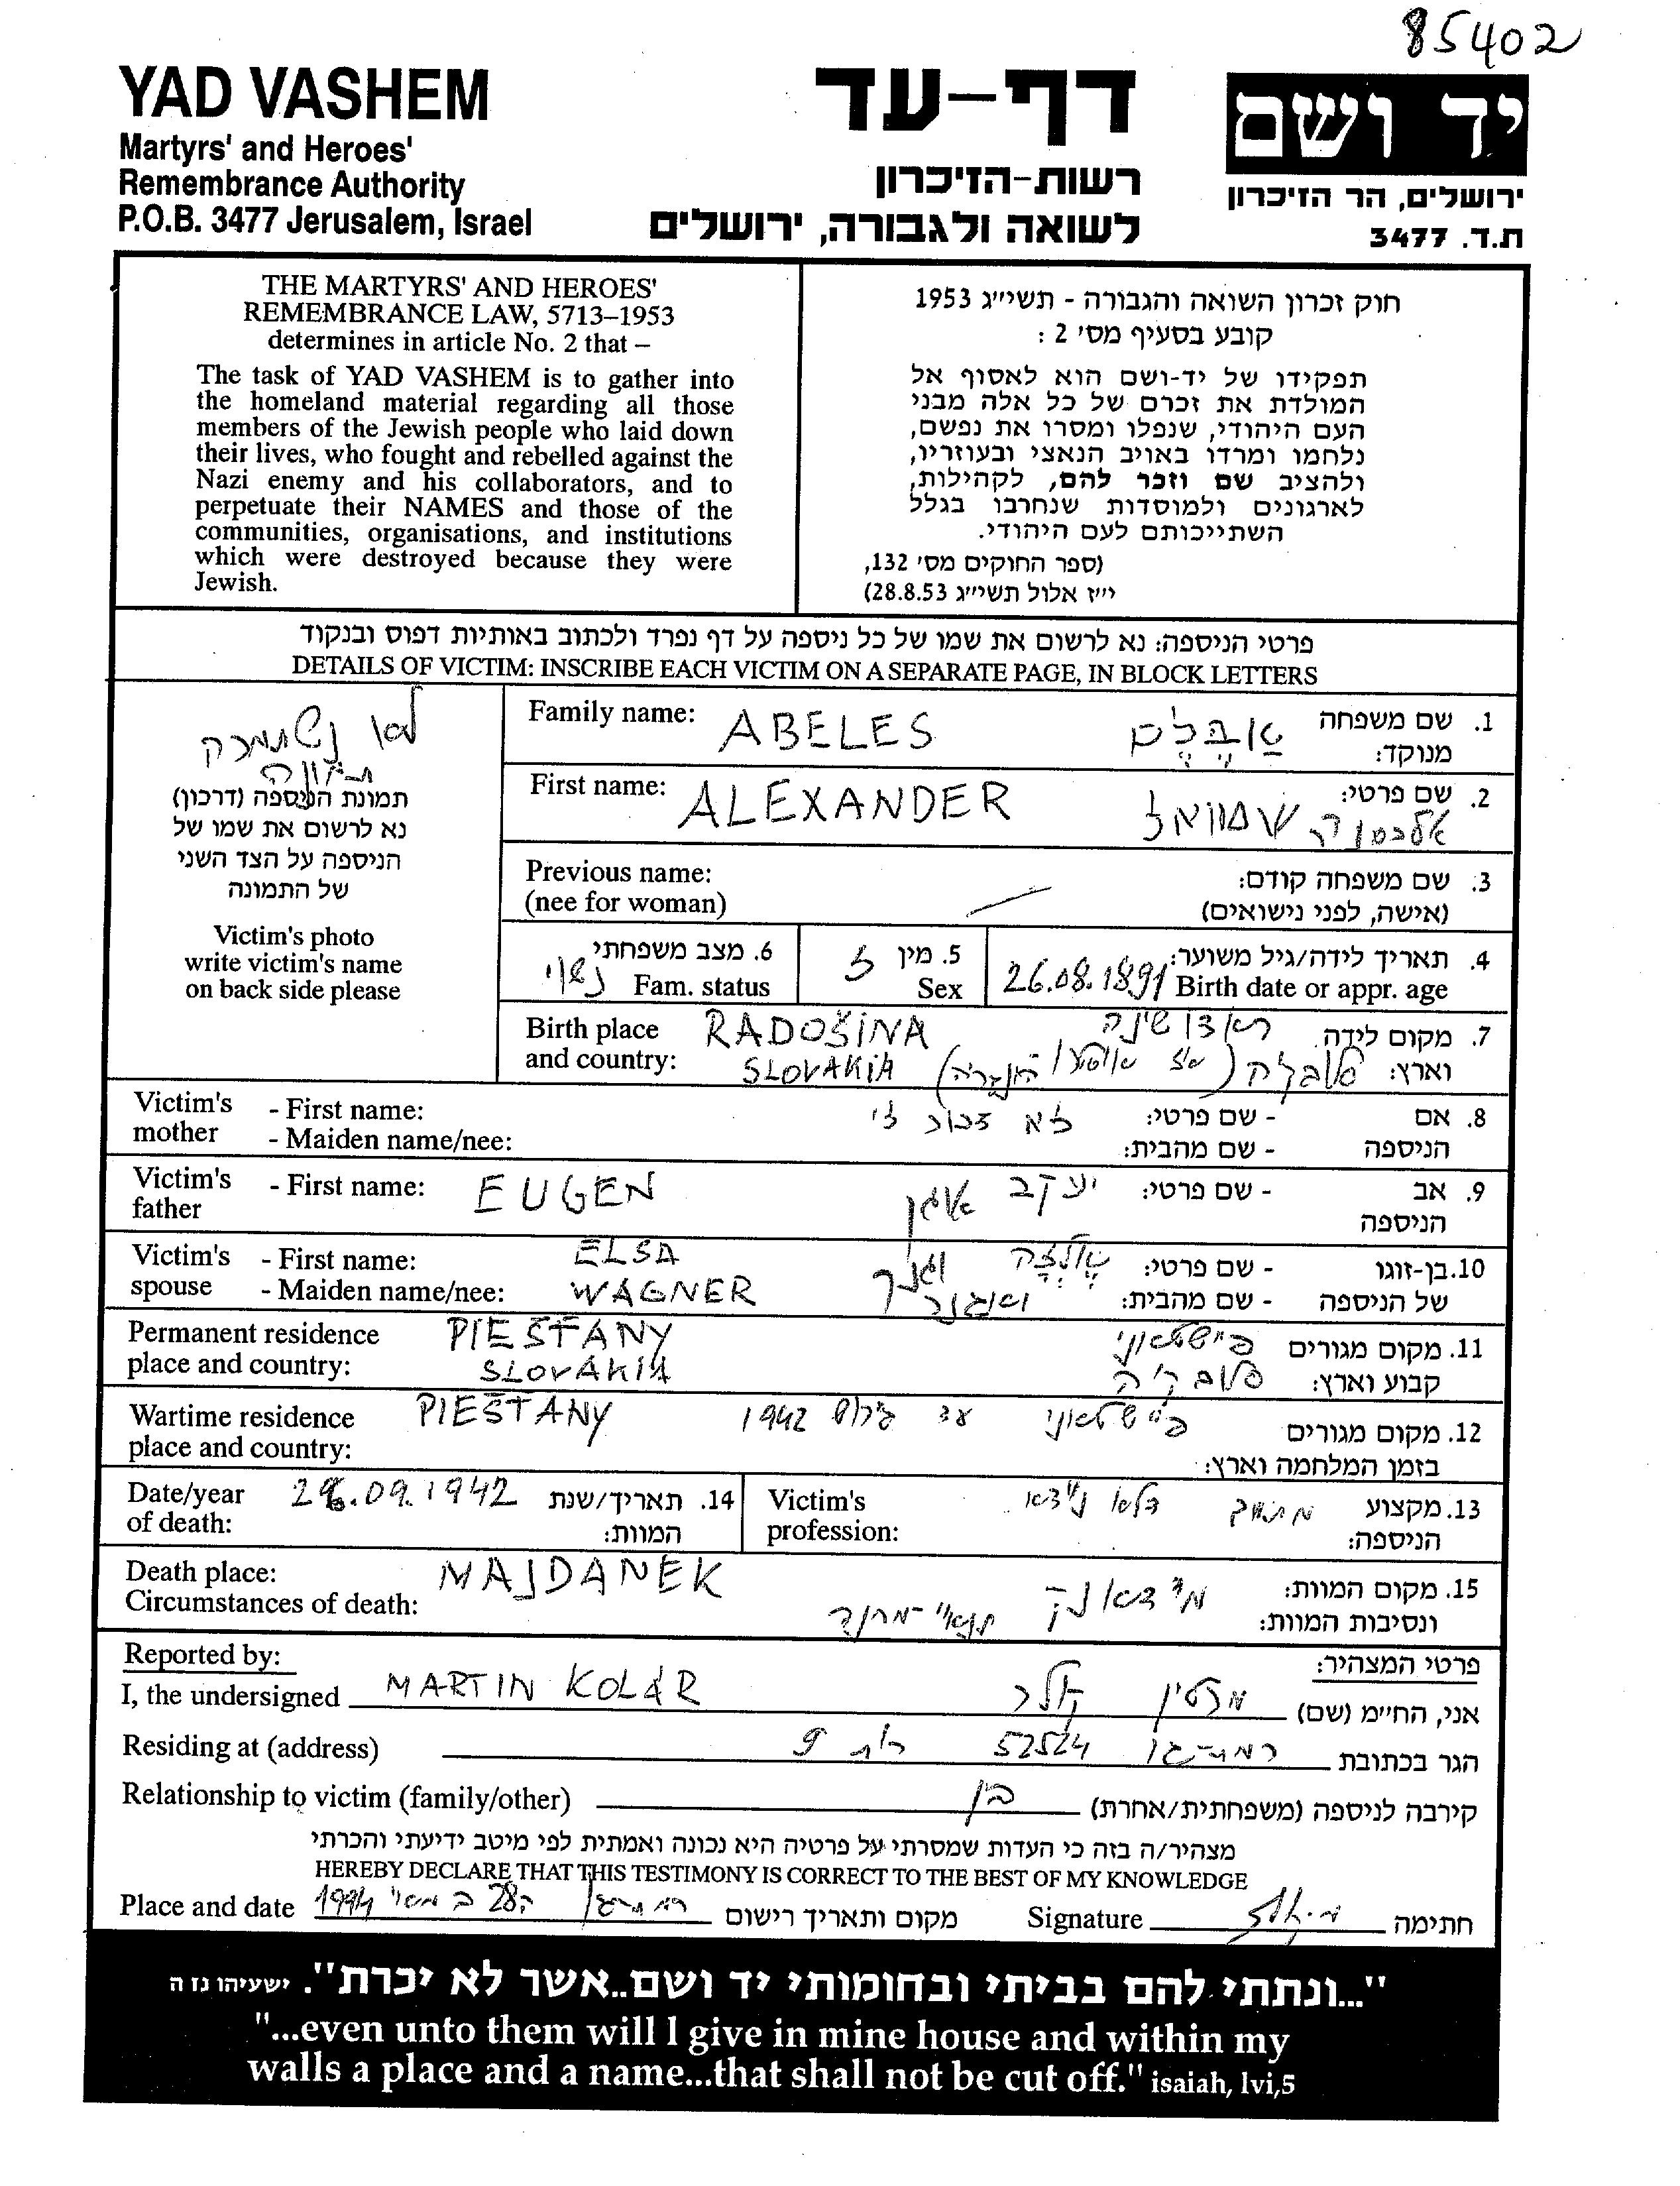 85402
YAD VASHEM
Martyrs' and Heroes'
Remembrance Authority
P.O.B. 3477 Jerusalem, Israel
דף-עד
רשות-הזיכרון
לשואה ולגבורה, ירושלים
יד ושם
ירושלים, הר הזיכרון
ת.ד. 3477
THE MARTYRS' AND HEROES'
REMEMBRANCE LAW, 5713–1953
determines in article No. 2 that –
The task of YAD VASHEM is to gather into
the homeland material regarding all those
members of the Jewish people who laid down
their lives, who fought and rebelled against the
Nazi enemy and his collaborators, and to
perpetuate their NAMES and those of the
communities, organisations, and institutions
which were destroyed because they were
Jewish.
חוק זכרון השואה והגבורה - תשי״ג 1953
קובע בסעיף מס׳ 2 :
תפקידו של יד-ושם הוא לאסוף אל
המולדת את זכרם של כל אלה מבני
העם היהודי, שנפלו ומסרו את נפשם,
נלחמו ומרדו באויב הנאצי ובעוזריו,
ולהציב שם וזכר להם, לקהילות,
לארגונים ולמוסדות שנחרבו בגלל
השתייכותם לעם היהודי.
(ספר החוקים מס׳ 132,
י״ז אלול תשי״ג 28.8.53)
פרטי הניספה: נא לרשום את שמו של כל ניספה על דף נפרד ולכתוב באותיות דפוס ובנקוד
DETAILS OF VICTIM: INSCRIBE EACH VICTIM ON A SEPARATE PAGE, IN BLOCK LETTERS
לא נשתמרה
תמונה
תמונת הניספה (דרכון)
נא לרשום את שמו של
הניספה על הצד השני
של התמונה
Victim's photo
write victim's name
on back side please
Family name: ABELES אַבֶּלֶס 1. שם משפחה
מנוקד:
First name: ALEXANDER 2. שם פרטי:
אלכסנדר שמואל
Previous name: 3. שם משפחה קודם:
(nee for woman) (אישה, לפני נישואים)
6. מצב משפחתי נשוי
Fam. status
5. מין ז
Sex
4. תאריך לידה/גיל משוער:
26.08.1891 Birth date or appr. age
Birth place RADOŠINA ראדושינה 7. מקום לידה
and country: SLOVAKIA סלובקיה (אז אוסטרו הונגריה) וארץ:
Victim's - First name: לא זכור לי - שם פרטי: 8. אם
mother - Maiden name/nee: - שם מהבית: הניספה
Victim's - First name: EUGEN יעקב אויגן - שם פרטי: 9. אב
father הניספה
Victim's - First name: ELSA אֶלְזָה - שם פרטי: 10. בן-זוגו
spouse - Maiden name/nee: WAGNER וגנר ואגנר - שם מהבית: של הניספה
Permanent residence PIEŠŤANY פיישטאני 11. מקום מגורים
place and country: SLOVAKIA סלובקיה קבוע וארץ:
Wartime residence PIEŠTANY פיישטאני עד גרוש 1942 12. מקום מגורים
place and country: בזמן המלחמה וארץ:
Date/year .09.1942 14. תאריך/שנת
of death: המוות:
Victim's 13. מקצוע
profession: הניספה:
Death place: MAJDANEK מידאנק 15. מקום המוות:
Circumstances of death: תנאי מחנה ונסיבות המוות:
Reported by: פרטי המצהיר:
I, the undersigned MARTIN KOLÁR מרטין קולר אני, החי״מ (שם)
Residing at (address) רמת-גן 52524 הגר בכתובת
Relationship to victim (family/other) בן קירבה לניספה (משפחתית/אחרת)
מצהיר/ה בזה כי העדות שמסרתי על פרטיה היא נכונה ואמתית לפי מיטב ידיעתי והכרתי
HEREBY DECLARE THAT THIS TESTIMONY IS CORRECT TO THE BEST OF MY KNOWLEDGE
Place and date רמת גן ה28 במאי 1994 מקום ותאריך רישום Signature חתימה
"...ונתתי להם בביתי ובחומותי יד ושם..אשר לא יכרת". ישעיהו נז ה
"...even unto them will I give in mine house and within my
walls a place and a name...that shall not be cut off." isaiah, lvi,5